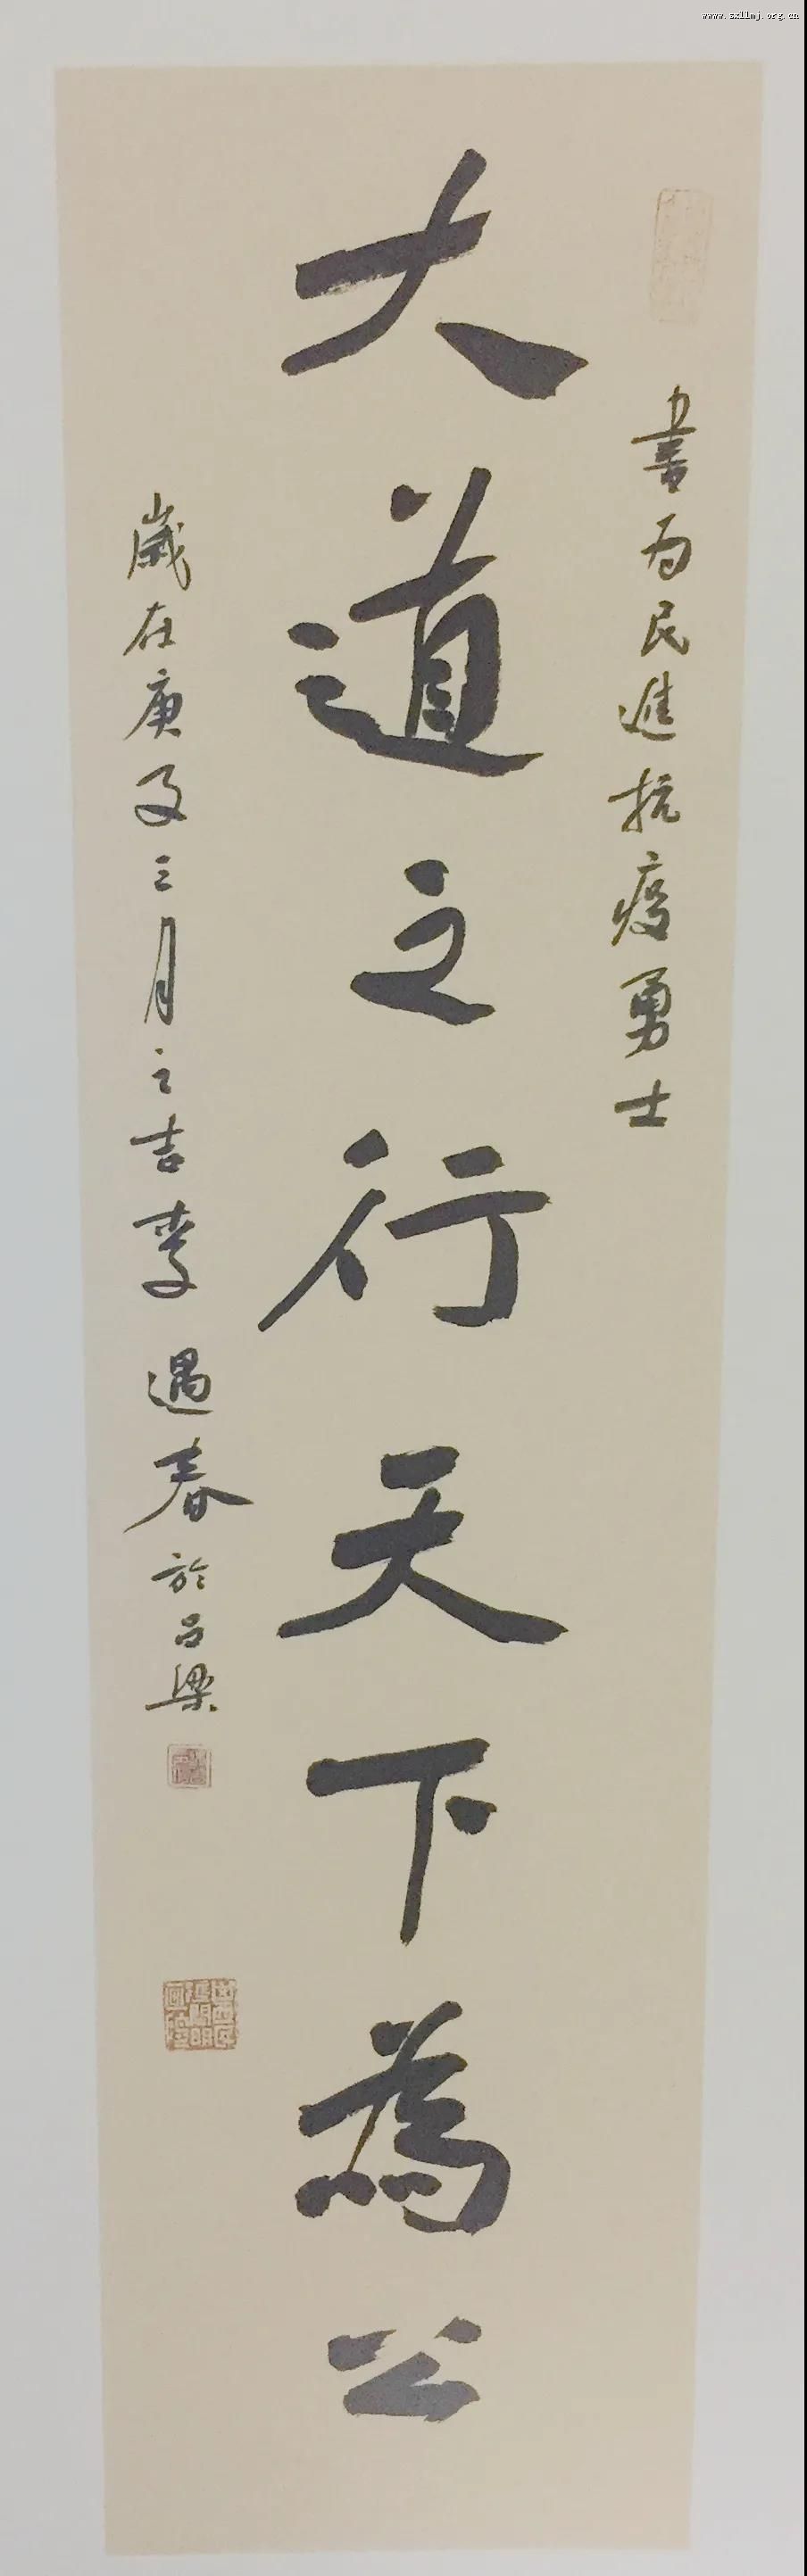 www.zxllmj.org.cn
書为民進抗疫勇士
大道之行天下為公
歲在庚子三月之吉李遇春於吕梁